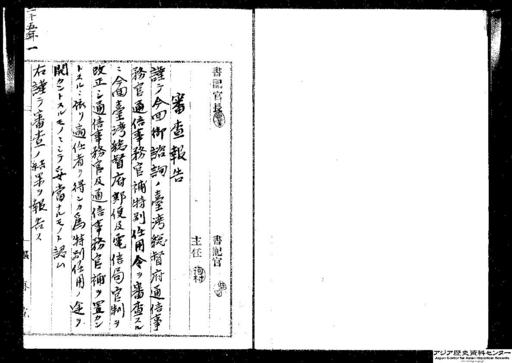 書記官長
書記官
主任
審査報告
謹テ今回御諮詢ノ臺湾総督府通信事
務官通信事務官補特別任用令ヲ審査スル
ニ今回臺湾総督府郵便及電信局官制ヲ
改正シ通信事務官及通信事務官補ヲ置カン
トスルニ依リ適任者ヲ得ンカ為特別任用ノ途ヲ
開カントスルモノニシテ妥當ナルモノト認ム
右謹テ審査ノ結果ヲ報告ス
二十五年一
アジア歴史資料センター
Japan Center for Asian Historical Records